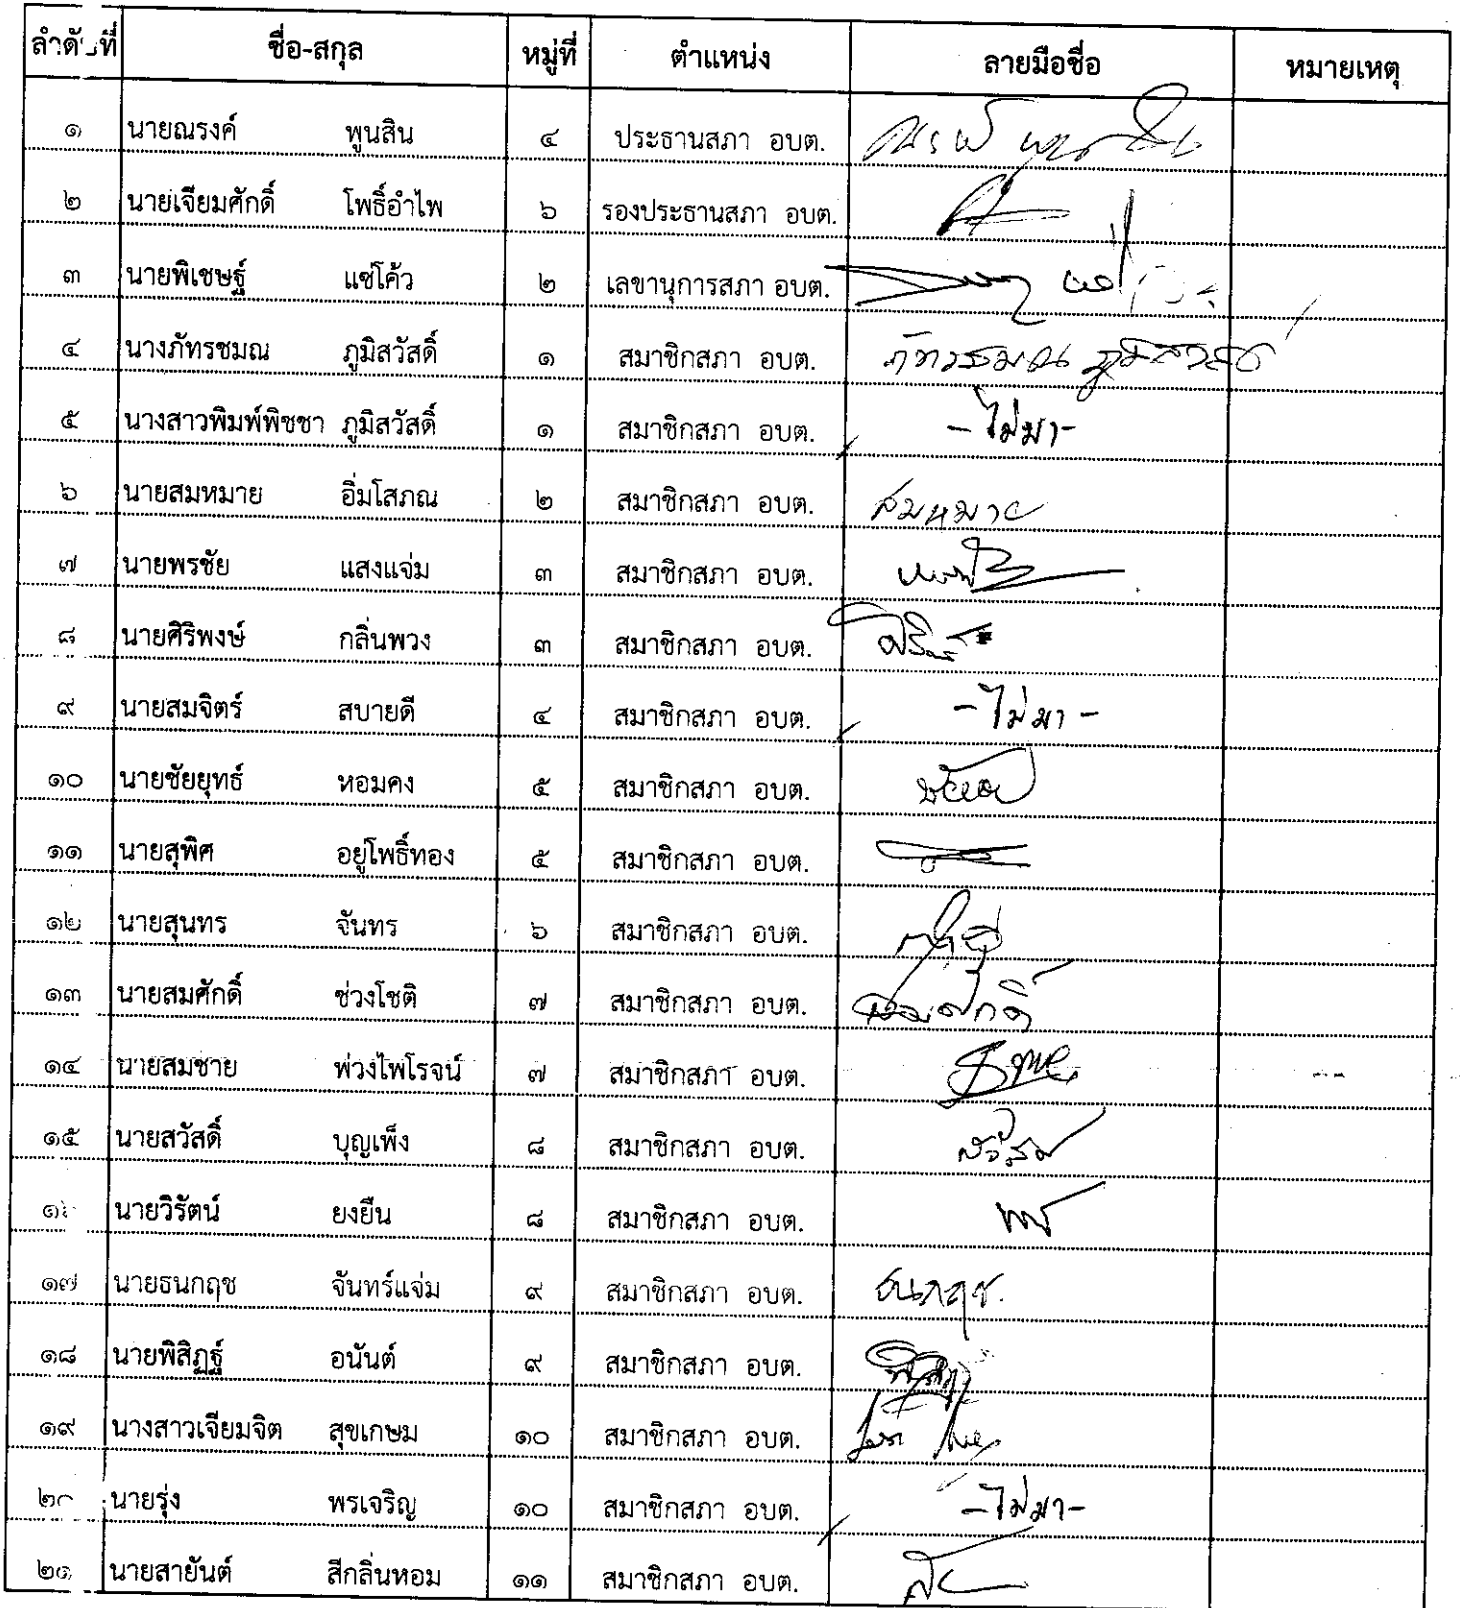 ลำดับที่ ชื่อ-สกุล หมู่ที่ ตำแหน่ง ลายมือชื่อ หมายเหตุ
๑ นายณรงค์ พูนสิน ๔ ประธานสภา อบต.
๒ นายเจียมศักดิ์ โพธิ์อำไพ ๖ รองประธานสภา อบต.
๓ นายพิเชษฐ์ แซ่โค้ว ๒ เลขานุการสภา อบต.
๔ นางภัทรชมณ ภูมิสวัสดิ์ ๑ สมาชิกสภา อบต. ภัทรชมณ ภูมิสวัสดิ์
๕ นางสาวพิมพ์พิชชา ภูมิสวัสดิ์ ๑ สมาชิกสภา อบต. -ไม่มา-
๖ นายสมหมาย อิ่มโสภณ ๒ สมาชิกสภา อบต. สมหมาย
๗ นายพรชัย แสงแจ่ม ๓ สมาชิกสภา อบต.
๘ นายศิริพงษ์ กลิ่นพวง ๓ สมาชิกสภา อบต.
๙ นายสมจิตร์ สบายดี ๔ สมาชิกสภา อบต. -ไม่มา-
๑๐ นายชัยยุทธ์ หอมคง ๕ สมาชิกสภา อบต.
๑๑ นายสุพิศ อยู่โพธิ์ทอง ๕ สมาชิกสภา อบต.
๑๒ นายสุนทร จันทร ๖ สมาชิกสภา อบต.
๑๓ นายสมศักดิ์ ช่วงโชติ ๗ สมาชิกสภา อบต. สมศักดิ์
๑๔ นายสมชาย พ่วงไพโรจน์ ๗ สมาชิกสภา อบต.
๑๕ นายสวัสดิ์ บุญเพ็ง ๘ สมาชิกสภา อบต.
๑๖ นายวิรัตน์ ยงยืน ๘ สมาชิกสภา อบต.
๑๗ นายธนกฤช จันทร์แจ่ม ๙ สมาชิกสภา อบต. ธนกฤช.
๑๘ นายพิสิฏฐ์ อนันต์ ๙ สมาชิกสภา อบต.
๑๙ นางสาวเจียมจิต สุขเกษม ๑๐ สมาชิกสภา อบต.
๒๐ นายรุ่ง พรเจริญ ๑๐ สมาชิกสภา อบต. -ไม่มา-
๒๑ นายสายันต์ สีกลิ่นหอม ๑๑ สมาชิกสภา อบต.